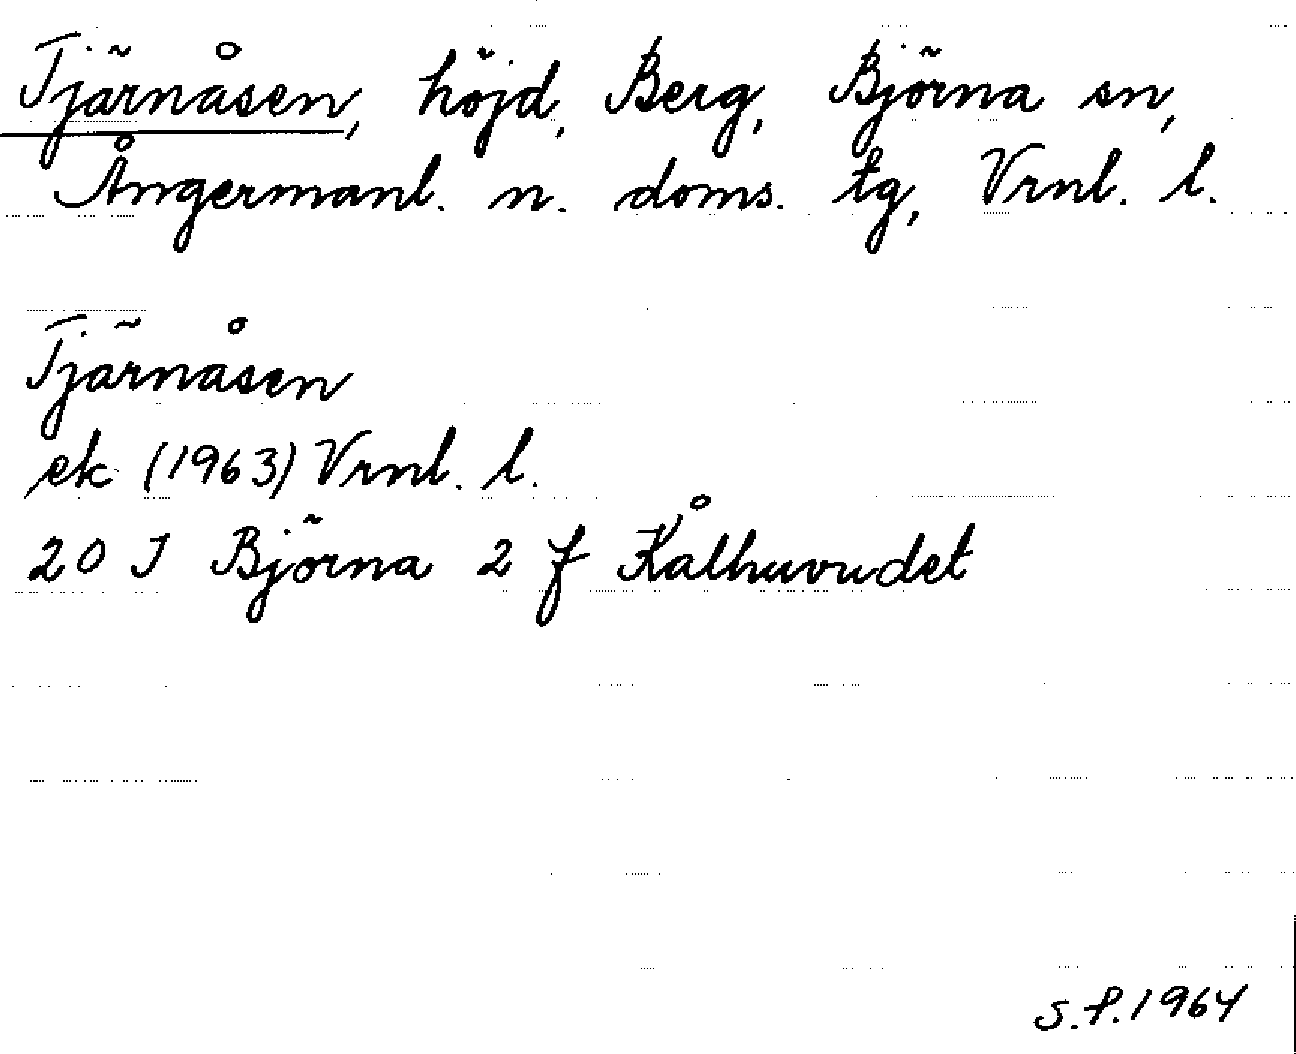 Tjärnåsen, höjd, Berg, Björna sn,
Ångermanl. n. doms. tg, Vrnl. l.
Tjärnåsen
ek (1963) Vrnl. l.
20 J Björna 2 f Kålhuvudet
S.P. 1964